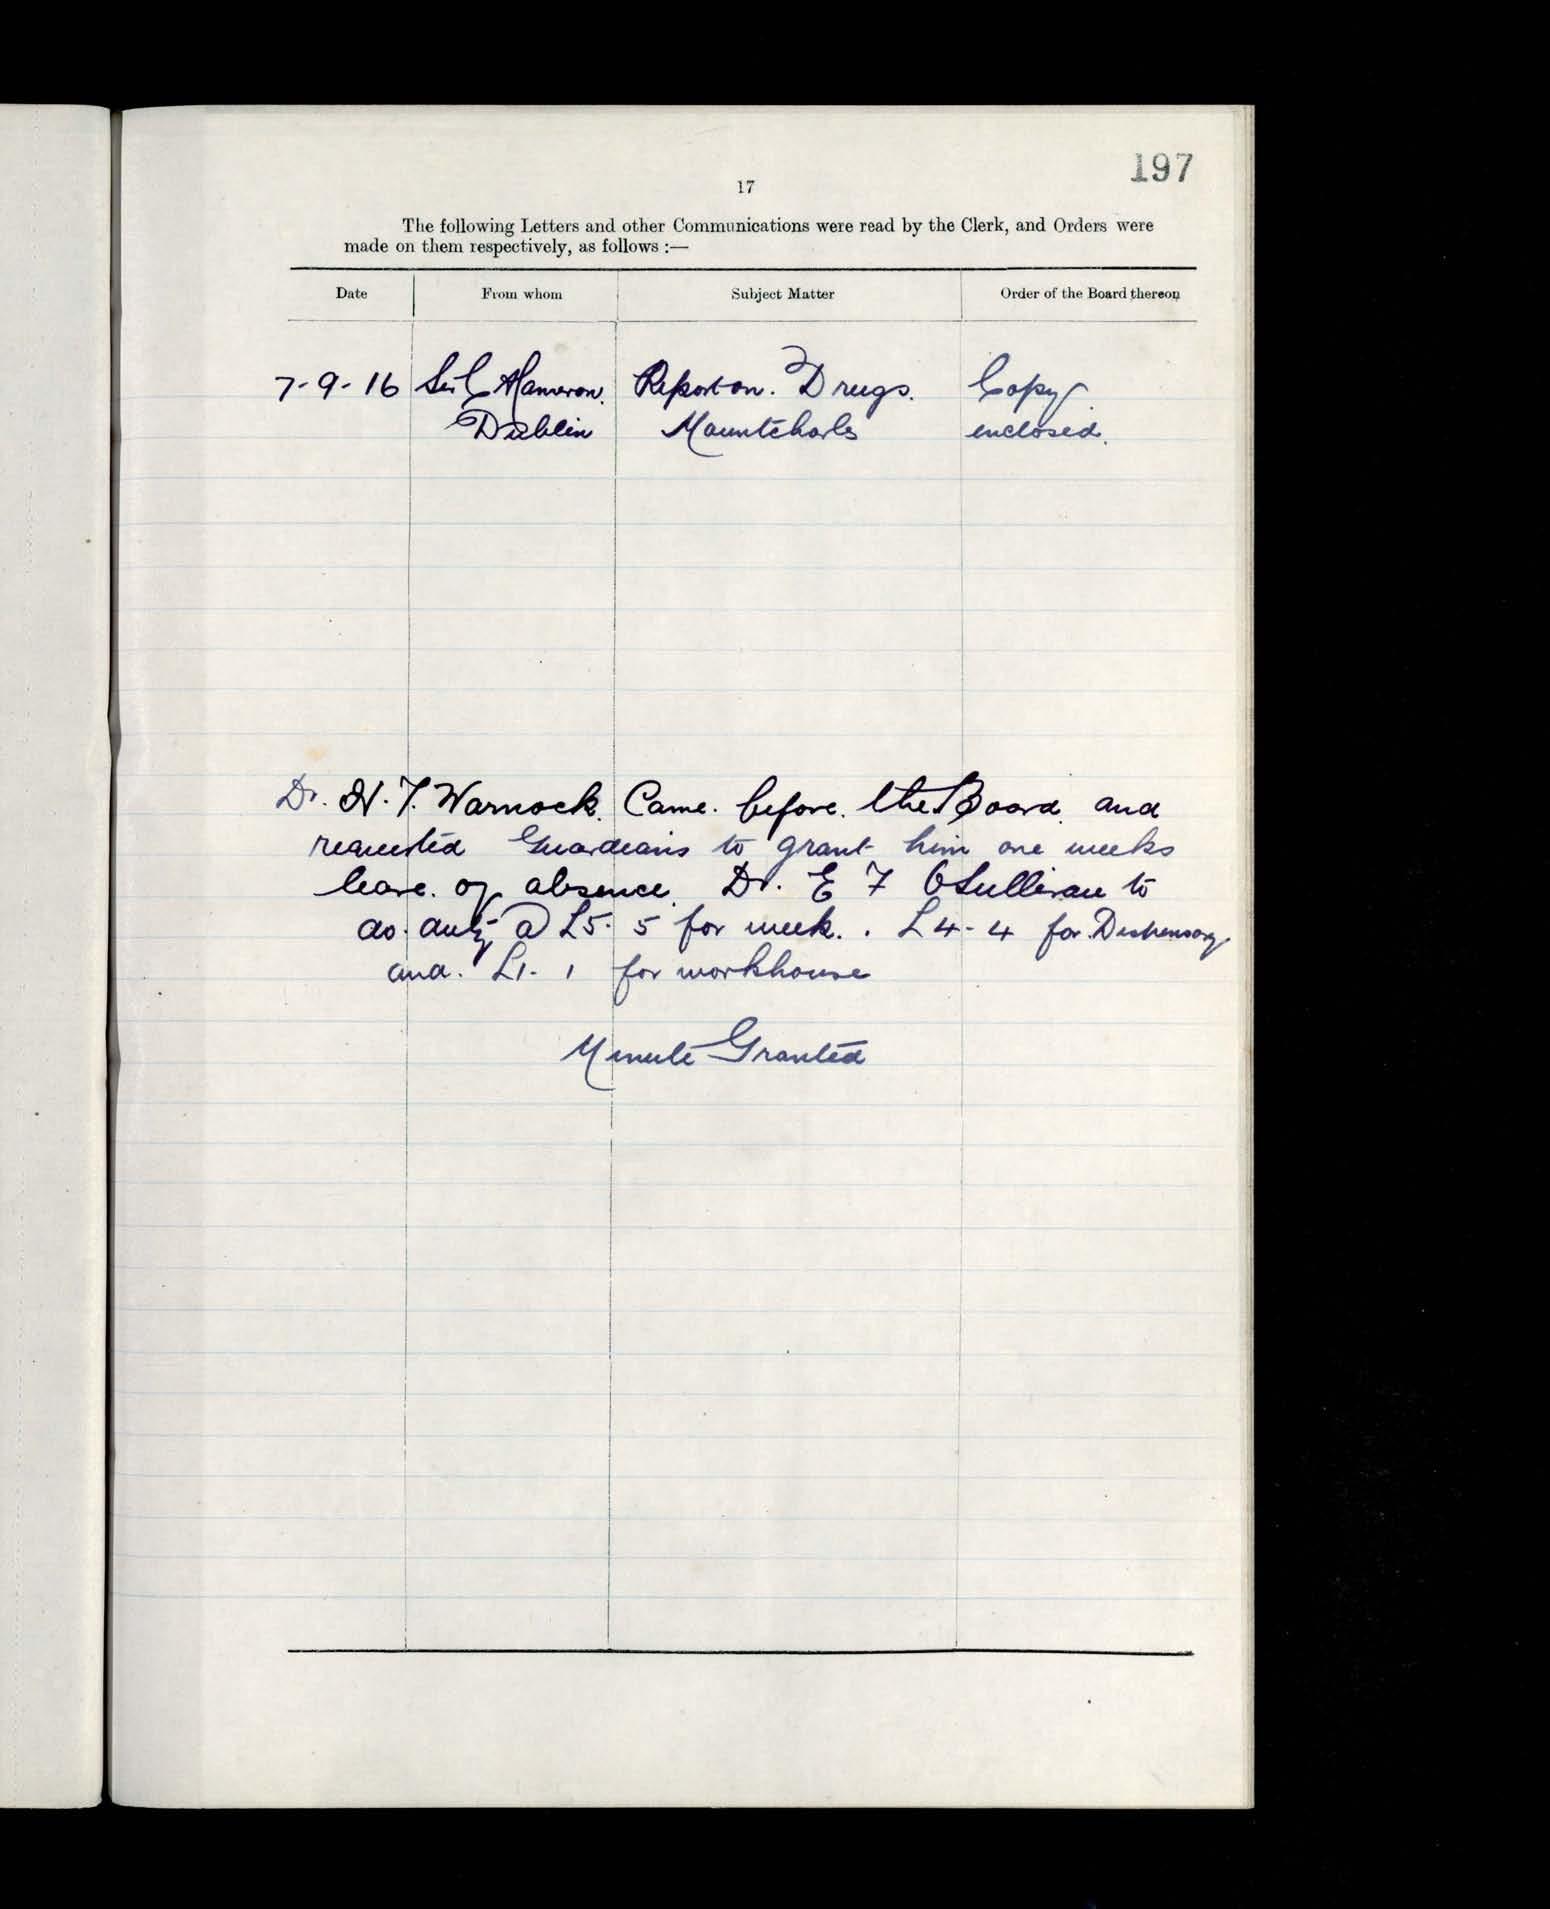 197
17
The following Letters and other Communications were read by the Clerk, and Orders were
made on them respectively, as follows :—
Date From whom Subject Matter Order of the Board thereon
7-9-16 Sir C Cameron. Report on. Drugs. Copy
Dublin Mountcharles enclosed.
Dr. H. T. Warnock. Came. before. the Board and
requested Guardians to grant him one weeks
leave. of absence. Dr. E F OSullivan to
do. duty @ £5. 5 for week. . £4-4 for. Dispensary
and. £1. 1 for workhouse
Minute Granted